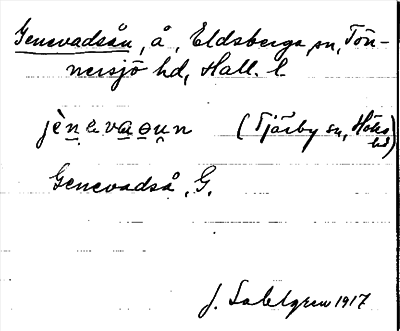 Genevadsån, å, Eldsberga sn, Tön-
nersjö hd, Hall. l.
jènevaoun (Tjärby sn, Höks
hd)
Genevadså, G.
J. Sahlgren 1917